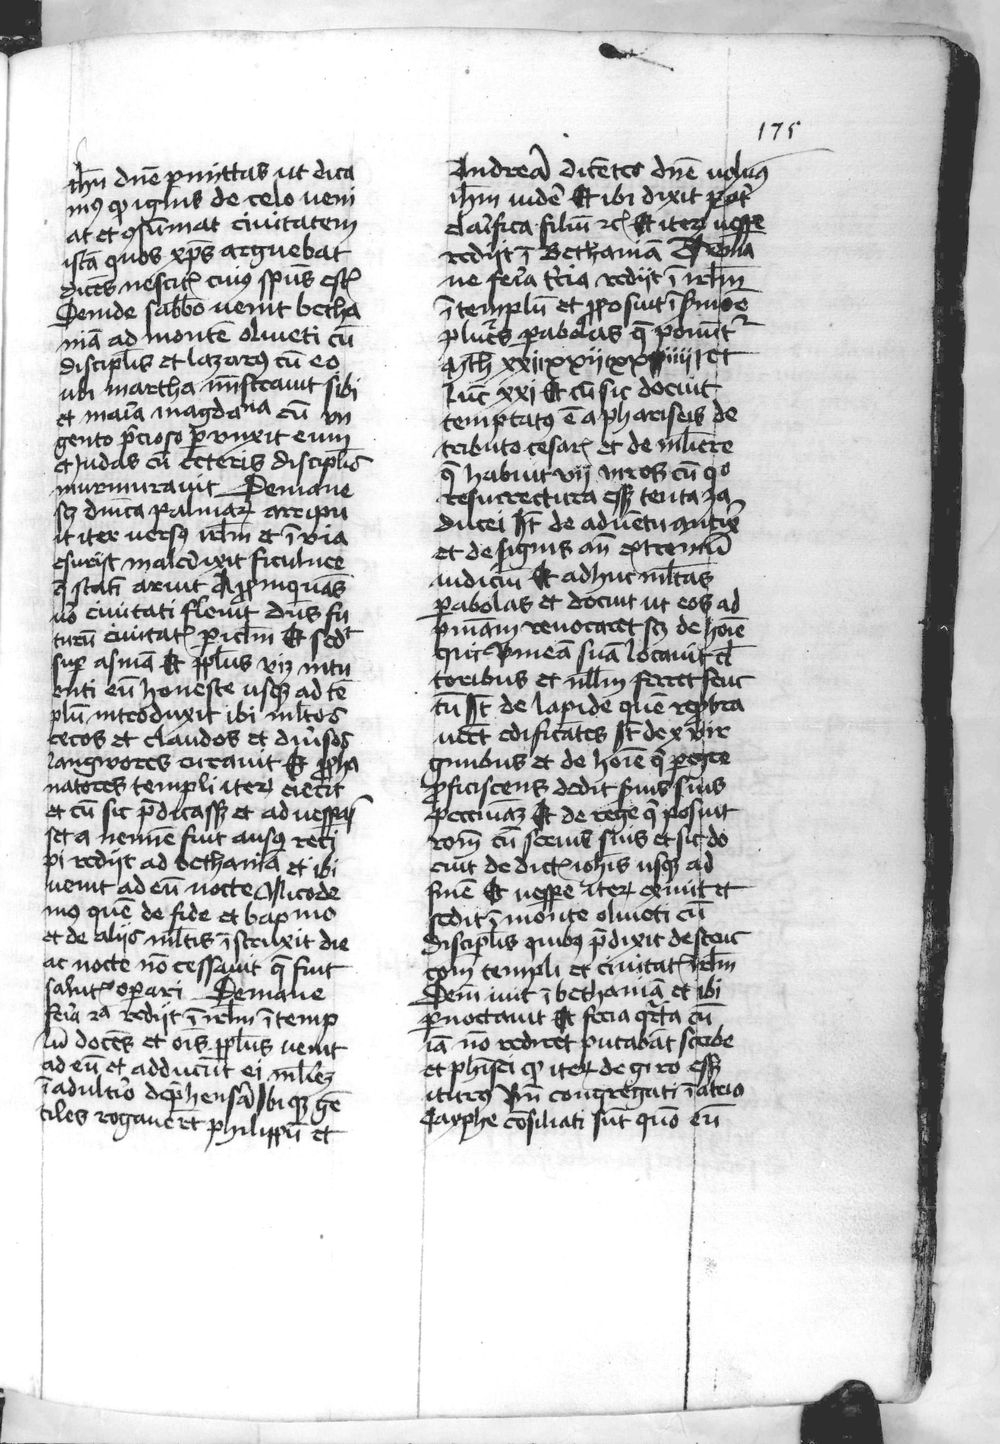 175
ihm dne permittas ut dica
mus quod ignis de celo veni
at et consumat civitatem
istam quos xps arguebat
dicens nescitis cuius spiritus estis
Deinde sabbo venit betha
niam ad montem oliveti cum
discipulis et lazarus cum eo
ubi martha ministravit sibi
et maria magdalena cum un
gento precioso perunxit eum
et Iudas cum ceteris discipulis
murmuravit Demane
scz dominica palmarum arripu
it iter versus irlm et in via
esuriit maledixit ficulnee
et statim aruit Appropinquans
vero civitati flevit dns fu
turum civitatis periculum Et sedit
super asinam Et populus
enti eum honeste usque ad tem
plum introduxit ibi multos
cecos et claudos et diversos
langwores curavit Et propha
natores templi iterum eiecit
et cum sic predicasset et ad vesperum
set a nemine fuit ausus reci
pi rediit ad bethaniam et ibi
venit ad eum nocte Nicode
mus quem de fide et baptismo
et de aliis multis instruxit die
ac nocte non cessavit que fuit
salutis operari Demane
feria 2a rediit in irlm in temp
lum docens et omnis populus venit
ad eum et adducunt ei mulierem
in adulterio deprehensam Ibique gen
tiles rogaverunt philippum et
Andream dicentes dne volumus
ihm videre Et ibi dixit pater
clarifica filium etc Et iterum vespere
rediit in Bethaniam
ne feria tercia rediit in irlm
in templum et proposuit in sermone
plures parabolas que ponuntur
Mth xxii xxiii xxiiii et
Luc xxi Et cum sic docuit
temptatus est a phariseis de
tributo cesaris et de muliere
que habuit vii viros cum quo
resurrectura esset tenta za
ducei Item de adventu antixi
et de signis ante extremum
iudicium Et adhuc multas
parabolas et docuit ut eos ad
penitenciam revocaret scz de homine
qui vineam suam locavit cul
toribus et nullum ferret fruc
tum Item de lapide quem reproba
verunt edificantes Item de x vir
ginibus et de homine qui peregre
proficiscens dedit servis suis
pecuniam Et de rege qui posuit
rationem cum servis suis et sic do
cuit de dictis vobis usque ad
finem Et vespere iterum exivit et
sedit in monte oliveti cum
discipulis quibus predixit destruc
cionem templi et civitatis irlm
Demum ivit in bethaniam et ibi
pernoctavit Et feria quarta cum
iam non rediret putabant scribe
et pharisei quod iterum de giro esset
iturus Unde congregati in atrio
Cayphe consiliati sunt quomodo eum